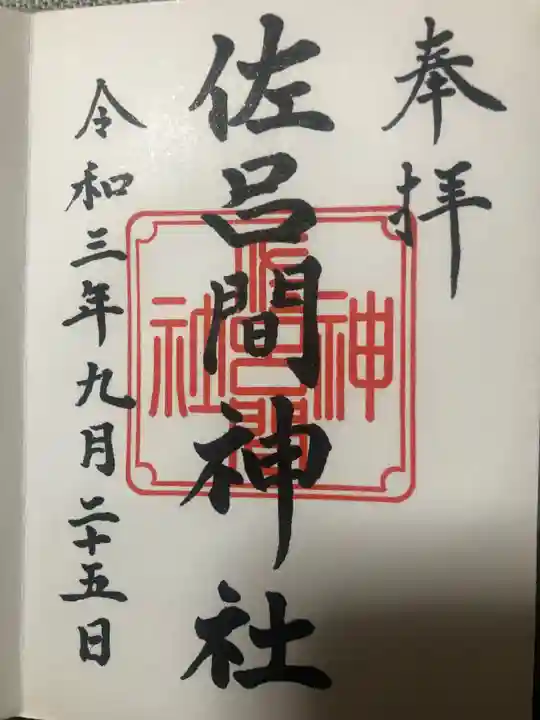 奉拝
佐呂間神社
令和三年九月二十五日
佐呂間
神
社